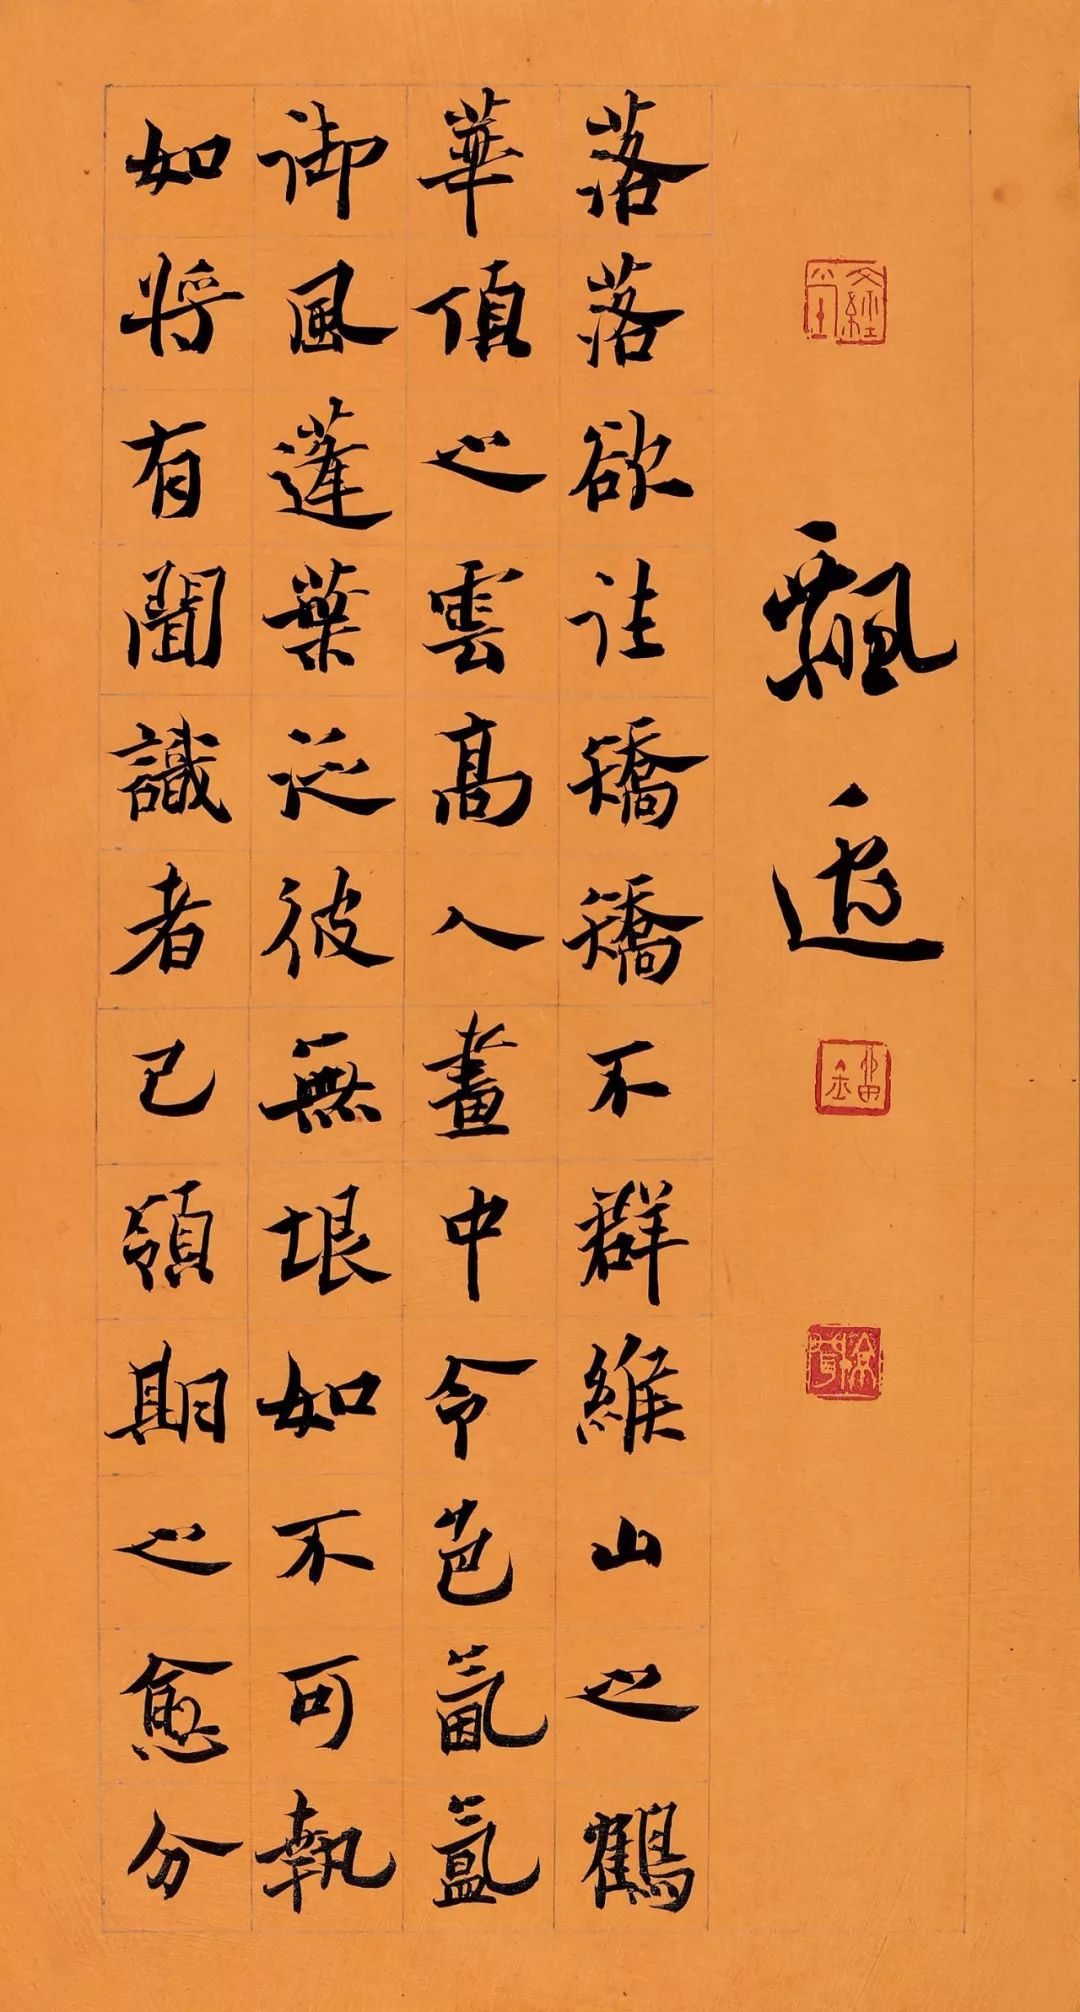 飄逸
落落欲往矯矯不群緱山之鶴
華頂之雲高人畫中令色氤氳
御風蓬葉泛彼無垠如不可執
如將有聞識者已領期之愈分